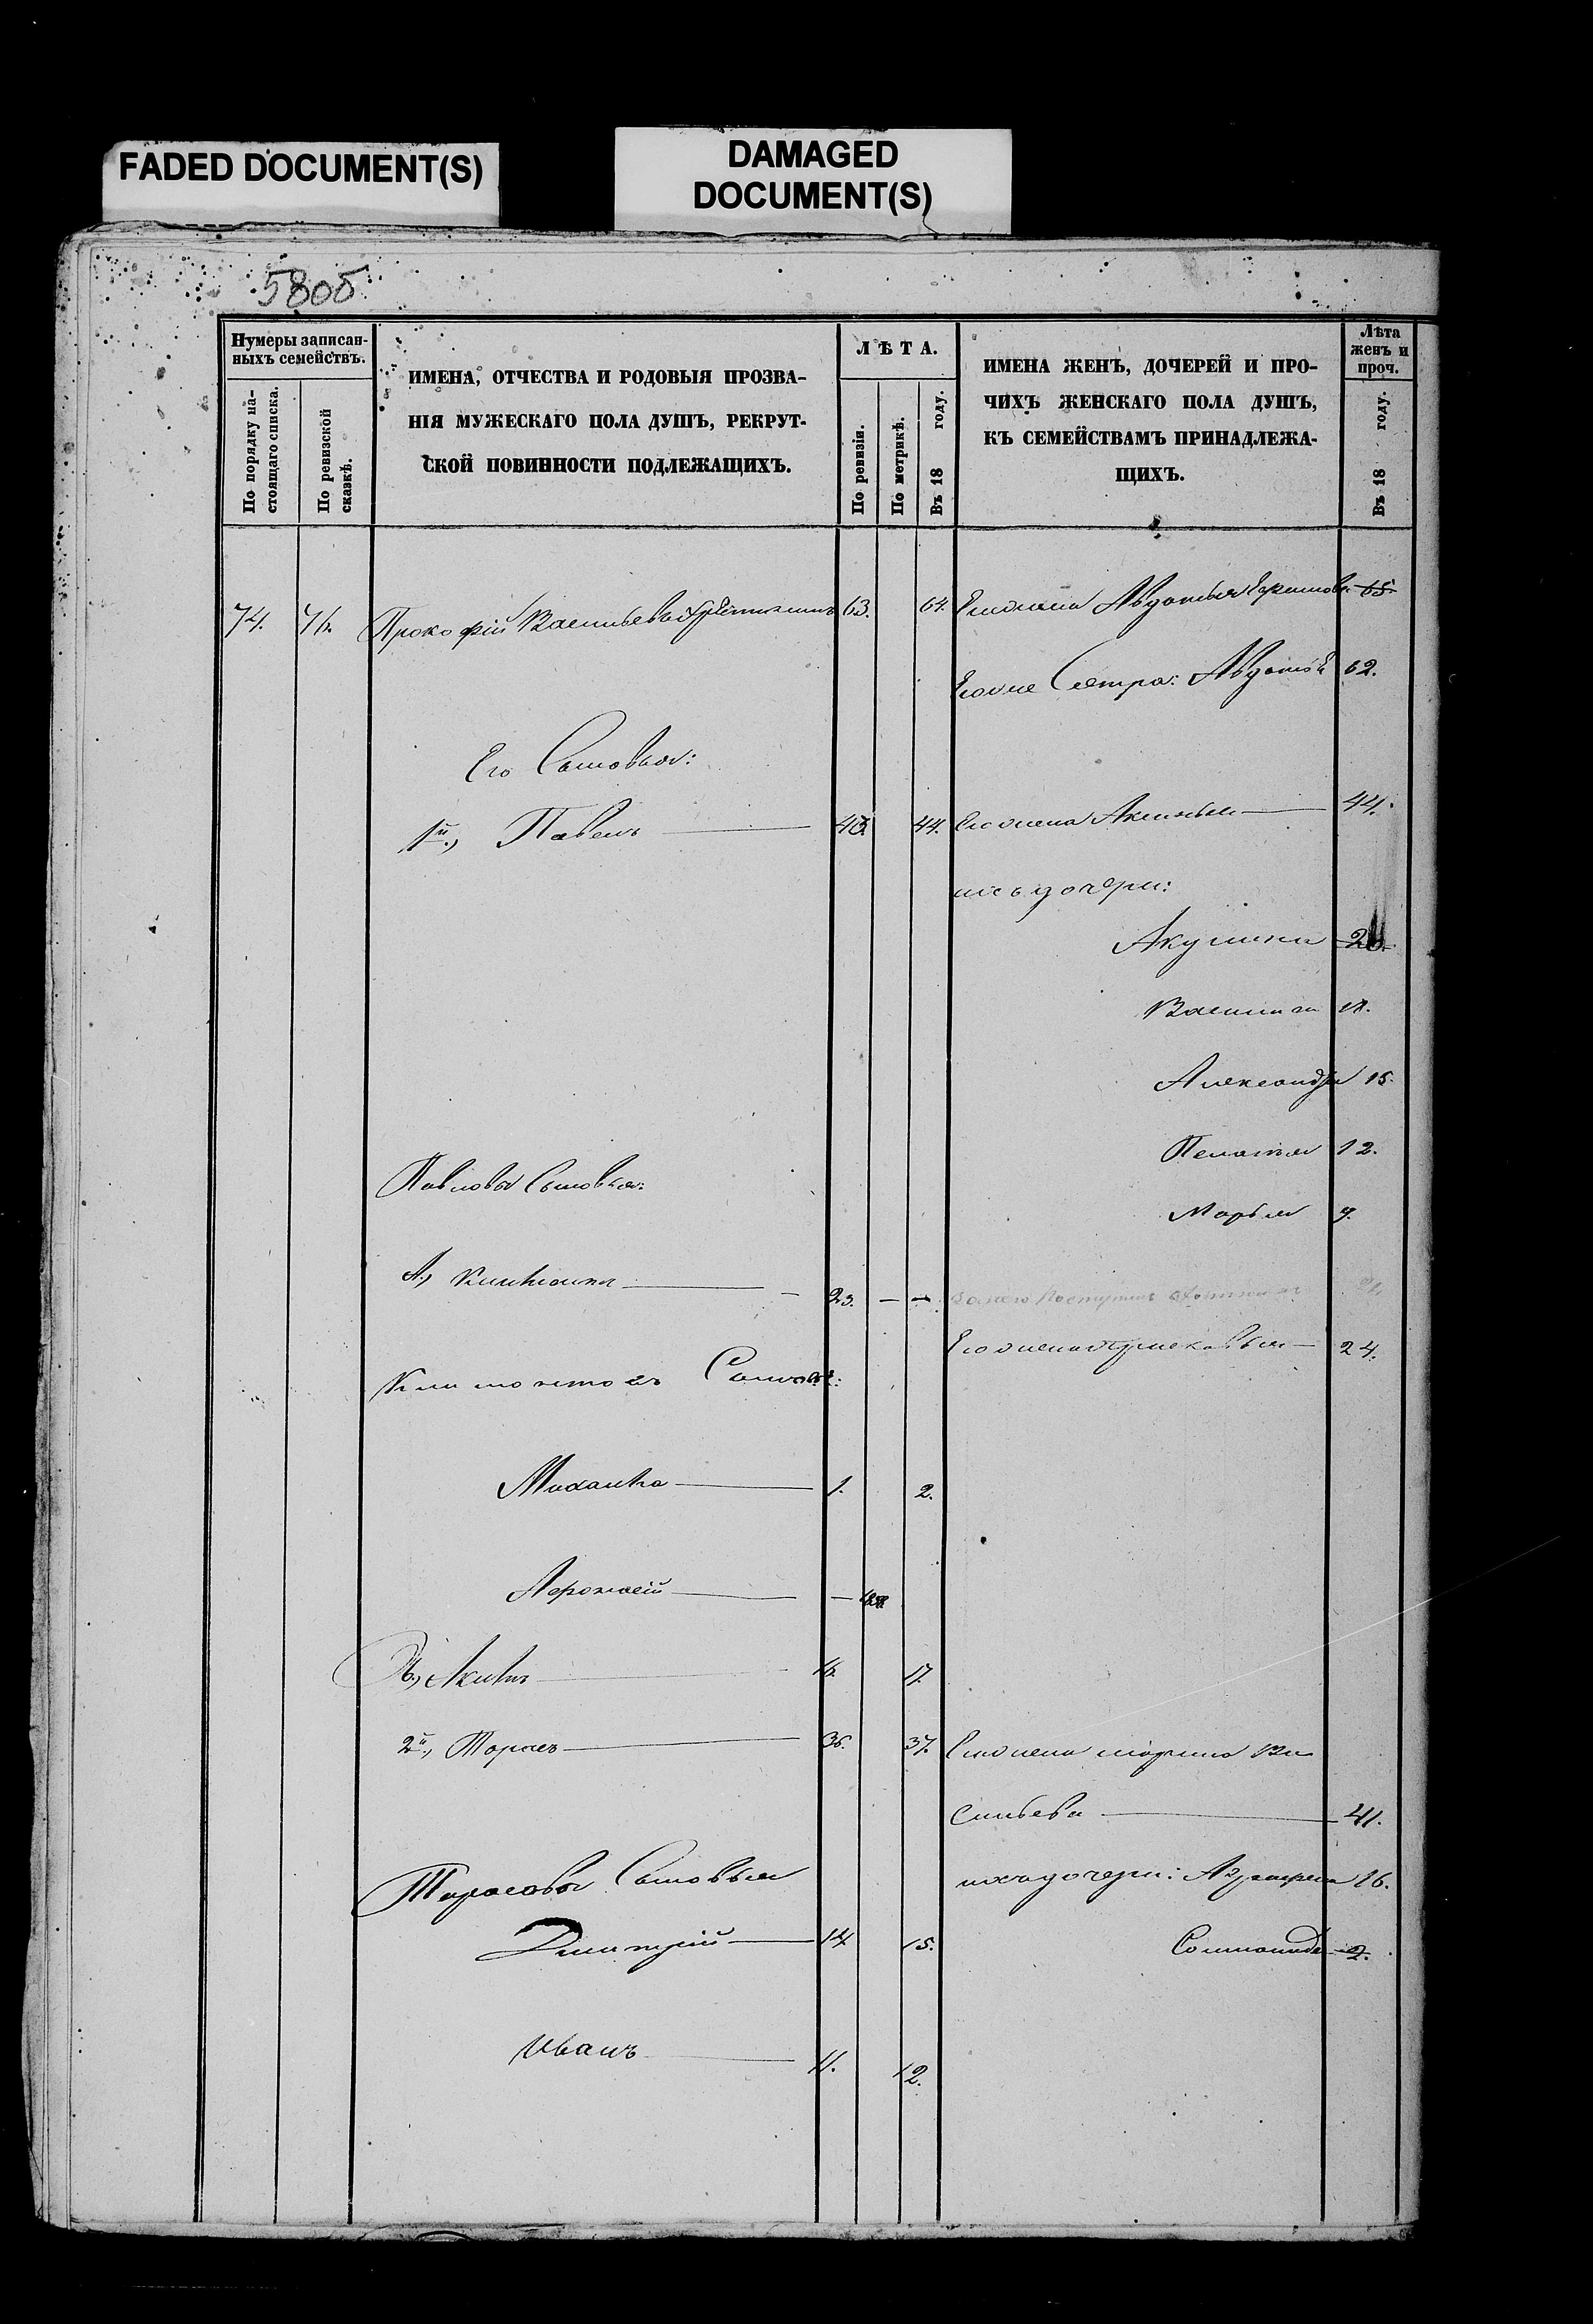 FADED DOCUMENT(S)
DAMAGED
DOCUMENT(S)
580б
Нумеры записан-
ныхъ семействъ.
По порядку на-
стоящаго списка.
По ревизской
сказкѣ.
ИМЕНА, ОТЧЕСТВА И РОДОВЫЯ ПРОЗВА-
НІЯ МУЖЕСКАГО ПОЛА ДУШЪ, РЕКРУТ-
СКОЙ ПОВИННОСТИ ПОДЛЕЖАЩИХЪ.
ЛѢТА.
По ревизіи.
По метрикѣ.
Въ 18 году.
ИМЕНА ЖЕНЪ, ДОЧЕРЕЙ И ПРО-
ЧИХЪ ЖЕНСКАГО ПОЛА ДУШЪ,
КЪ СЕМЕЙСТВАМЪ ПРИНАДЛЕЖА-
ЩИХЪ.
Лѣта
женъ и
проч.
Въ 18 году.
74. Прокофій Васильевъ 63. 64. Его жена Авдотья 65
Его же Сестра: Авдотья 62.
Его Сыновья:
1й., Павелъ 43. 44. Его жена Аксинья 44.
ихъ дочери:
Акулина
Василиса 18.
Александра 15.
Пелагия 12.
Павловы Сыновья:
Марья
А., 23. За него поступилъ
Его жена 24.
Сыновья:
Михаила 1. 2.
Афонасій
Б., Акимъ 16. 17.
2й., Тарасъ 36. 37. Его жена Марина Ва
сильева 41.
Тарасовы Сыновья
ихъ дочери: Аграфена 16.
Дмитрий 14 15. Соломонида 2.
Иванъ 11. 12.